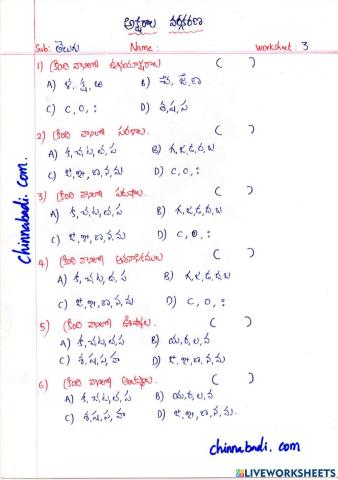 అక్షరాల వర్గీకరణ
Sub: తెలుగు Name: Worksheet : 3
1) క్రింది వానిలో ఉభయాక్షరాలు ( )
A) ళ, క్ష, ఱ B) చ, జ, ణ
C) c, o, : D) శ, ష, స
2) క్రింది వానిలో సరళాలు. ( )
A) క, చ, ట, త, ప B) గ, జ, డ, ద, బ
C) ఙ, ఞ, ణ, న, మ D) c, o, :
3) క్రింది వానిలో పరుషాలు. ( )
A) క, చ, ట, త, ప B) గ, జ, డ, ద, బ
C) ఙ, ఞ, ణ, న, మ D) c, o, :
4) క్రింది వానిలో అనునాసికములు ( )
A) క, చ, ట, త, ప B) గ, జ, డ, ద, బ
C) ఙ, ఞ, ణ, న, మ D) c, o, :
5) క్రింది వానిలో ఊష్మాలు. ( )
A) క, చ, ట, త, ప B) య, ర, ల, వ
C) శ, ష, స, హ D) ఙ, ఞ, ణ, న, మ
6) క్రింది వానిలో అంతస్థాలు. ( )
A) క, చ, ట, త, ప B) య, ర, ల, వ
C) శ, ష, స, హ D) ఙ, ఞ, ణ, న, మ.
chinnabadi. com.
chinnabadi. com
LIVEWORKSHEETS